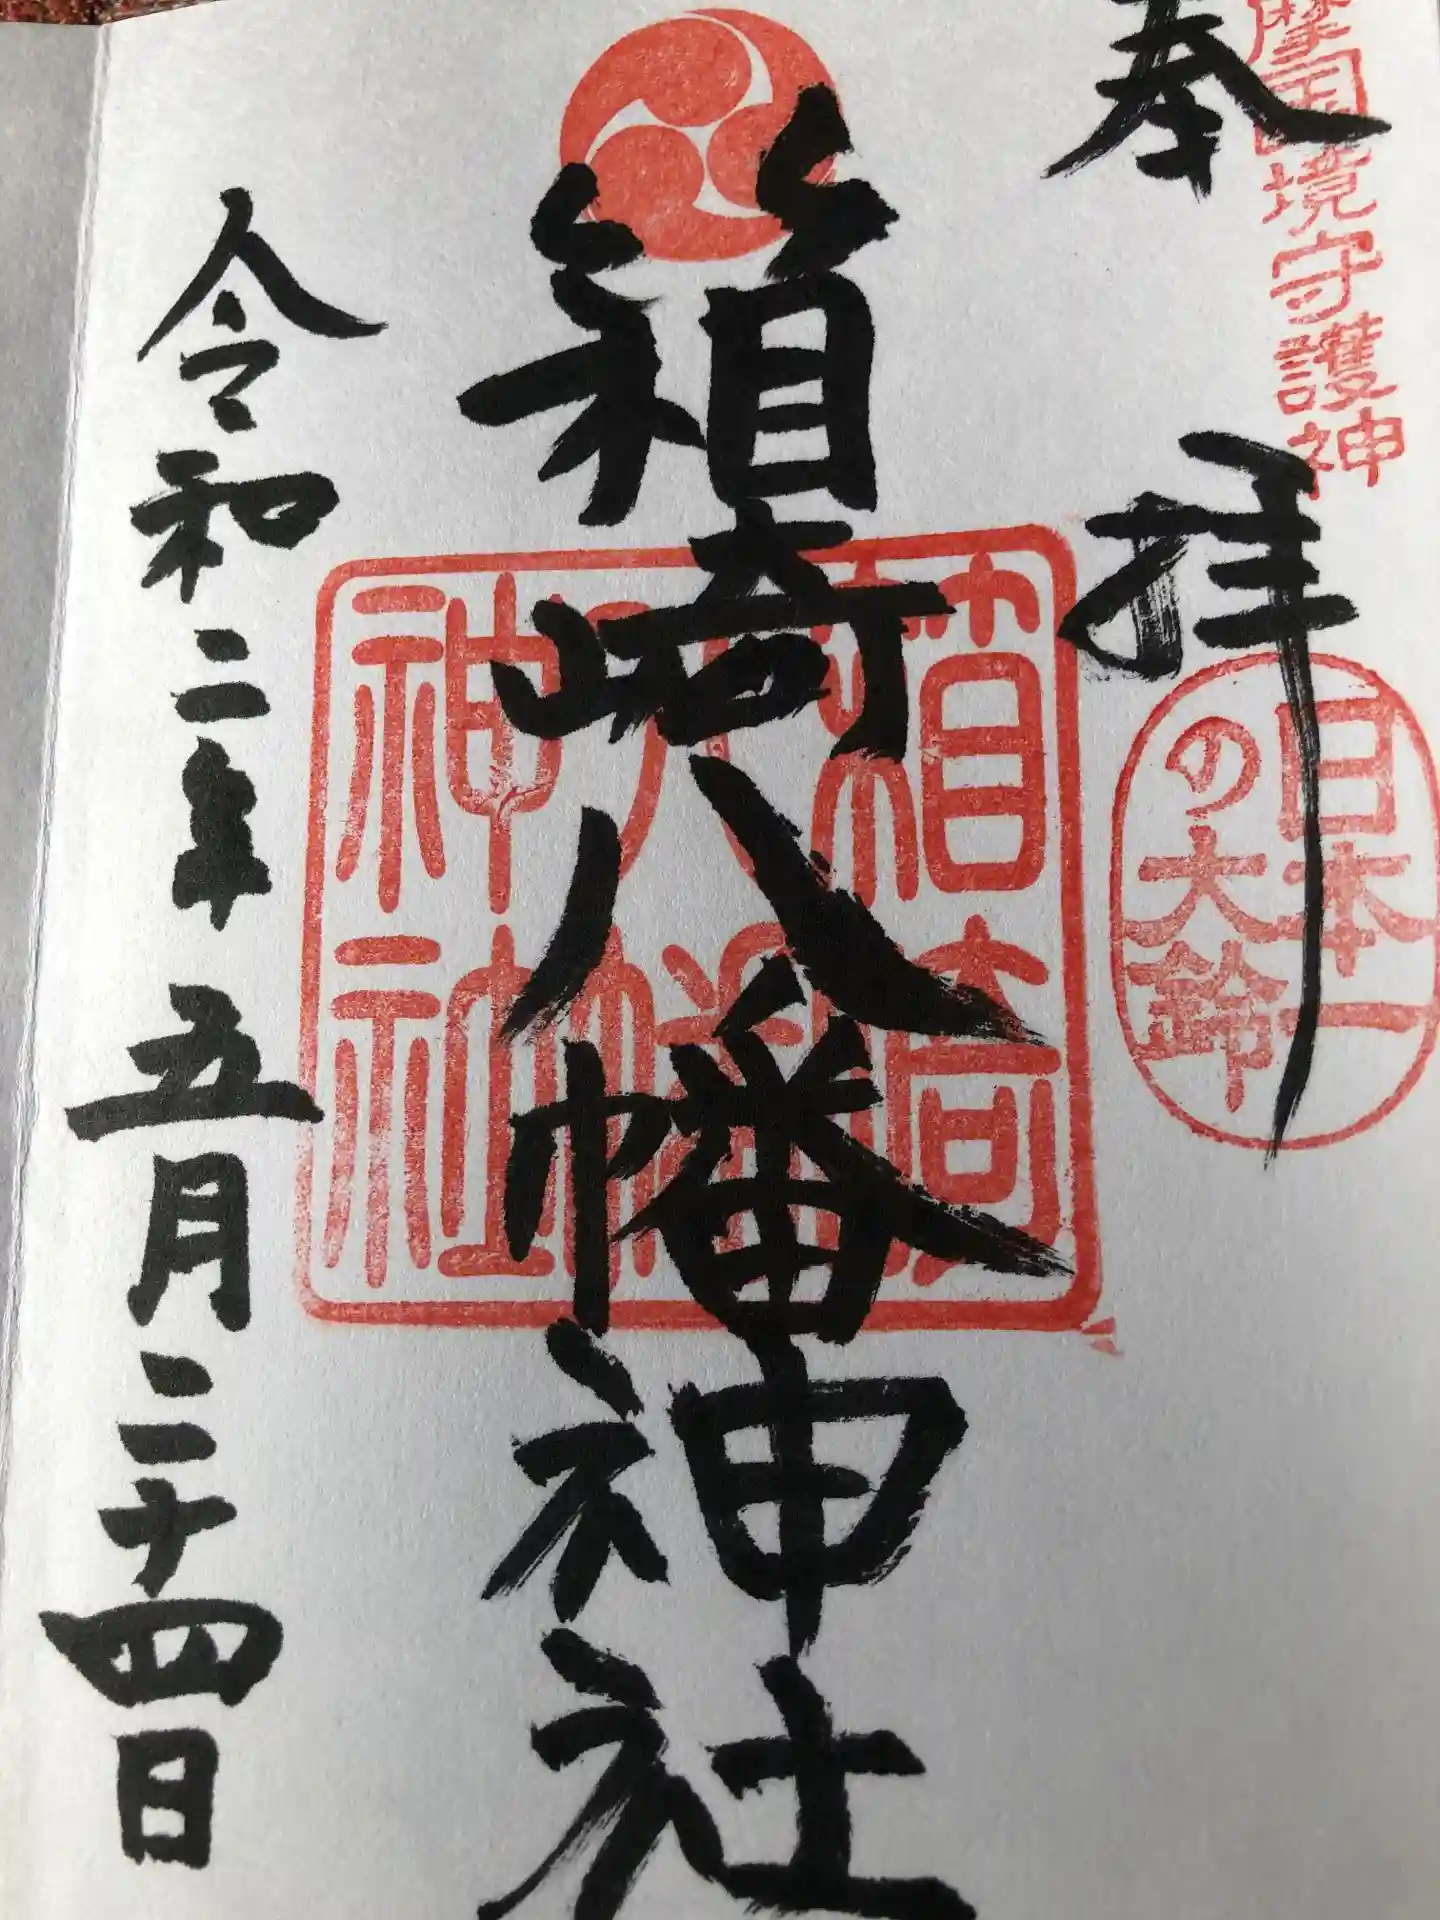 摩国国境守護神
奉拝
日本一
の大鈴
箱崎八幡神社
箱崎
八幡
神社
令和二年五月二十四日